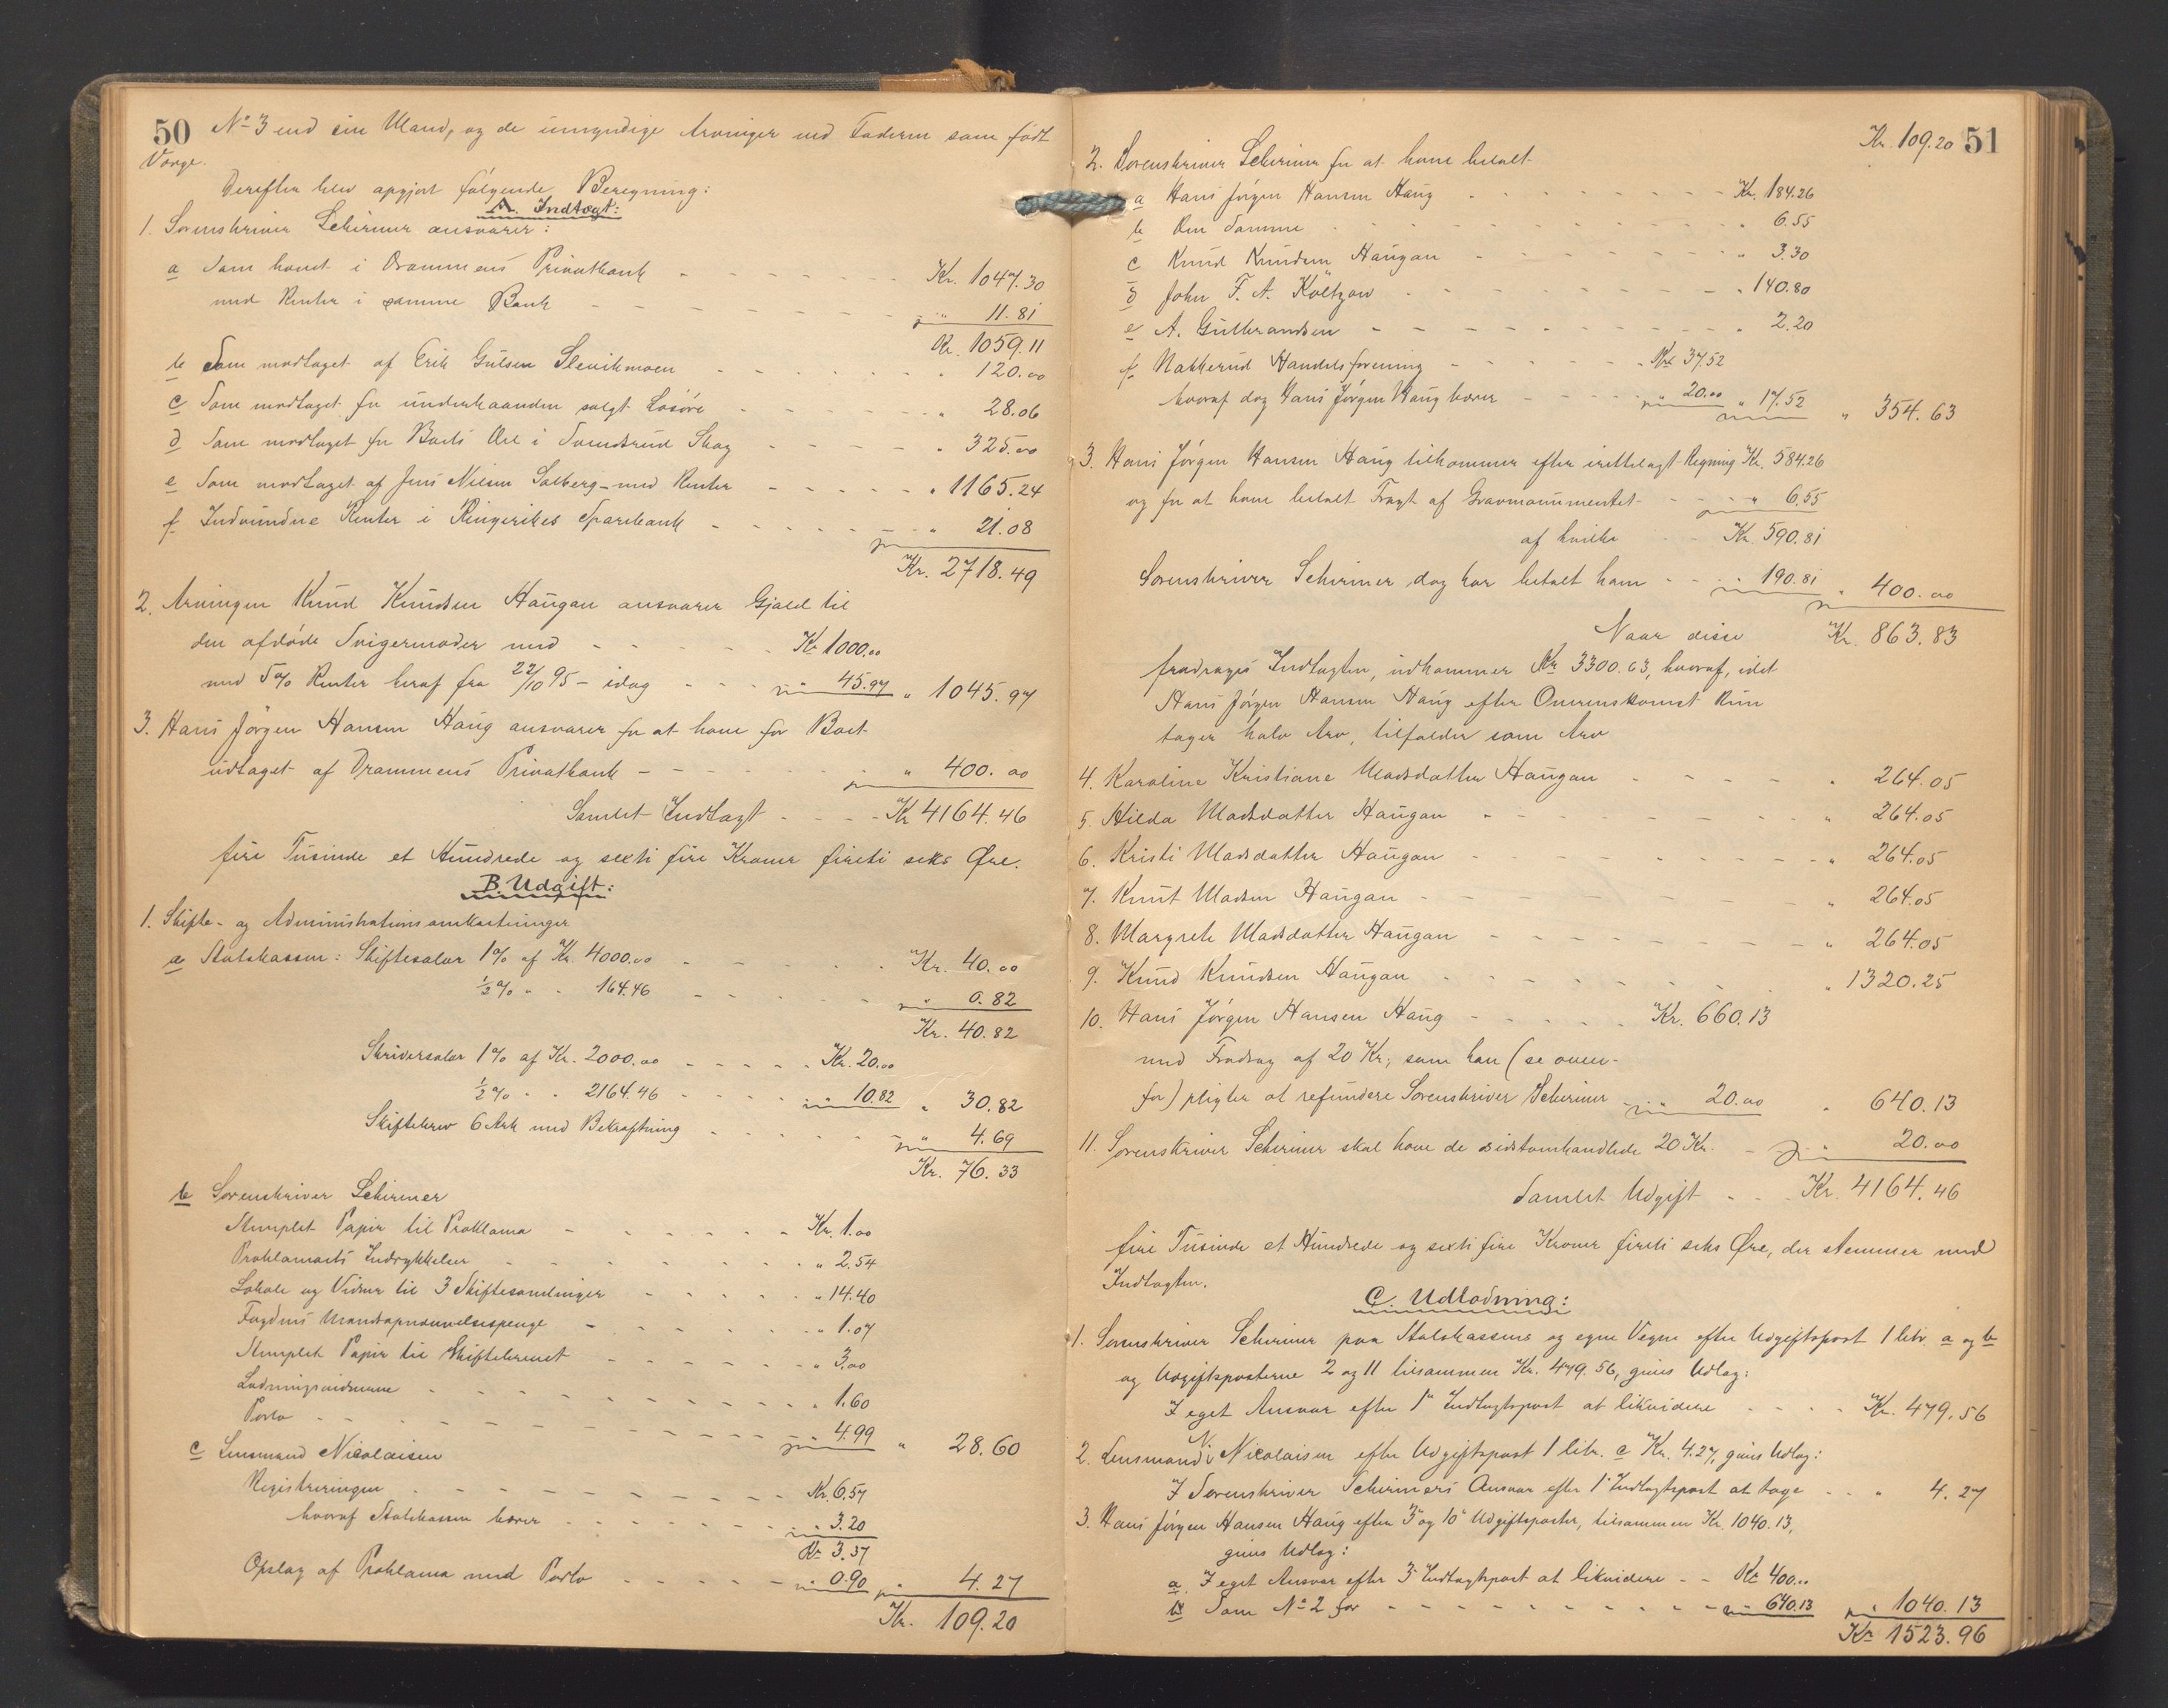 50 No 3 end sin Mand, og de umyndige Arvinger ved Faderen som født
Værge.
Derefter blev opgjort følgende Beregning:
A. Indtægt:
1. Sorenskriver Schirmer ansvarer:
a Som havt i Drammens Privatbank - - - Kr. 1047.30
med Renter i samme Bank - - - " 11.81
Kr. 1059.11
b Som modtaget af Erik Gulsen Slevikmoen - - - " 120.00
c Som modtaget for underhaanden solgt Løsøre - - - " 28.06
d Som modtaget for Boets Del i Svendsrud Skog - - - " 325.00
e Som modtaget af Jens Nilsen Solberg med Renter - - - " 1165.24
f Indvundne Renter i Ringerikes Sparebank - - - " 21.08
Kr. 2718.49
2. Arvingen Knud Knudsen Haugan ansvarer Gjæld til
den afdøde Svigermoder med - - - Kr 1000.00
med 5% Renter heraf fra 22/10 95 - idag - - - " 45.97 " 1045.97
3. Hans Jörgen Hansen Haug ansvarer for at have for Boet
udtaget af Drammens Privatbank - - - " 400.00
Samlet Indtægt - - - Kr 4164.46
fire Tusinde et Hundrede og sexti fire Kroner firti seks Øre.
B. Udgift:
1. Skifte- og Administrationsomkostninger
a Statskassen: Skiftesalær 1% af Kr. 4000.00 - - - Kr. 40.00
½% " " 164.46 - - - " 0.82
Kr. 40.82
Skriversalær 1% af Kr. 2000.00 - - - Kr. 20.00
½% " " 2164.46 - - - " 10.82 " 30.82
Skiftebrev 6 Ark med Bekræftning - - - " 4.69
Kr. 76.33
b Sorenskriver Schirmer
Stemplet Papir til Proklama - - - Kr. 1.00
Proklamaets Indrykkelser - - - " 2.54
Lokale og Vidner til 3 Skiftesamlinger - - - " 14.40
Fogdens Mandsopnævnelsespenge - - - " 1.07
Stemplet Papir til Skiftebrevet - - - " 3.00
Lodningsvidnerne - - - " 1.60
Porto - - - " 4.99 " 28.60
c Lensmand Nicolaisen
Registreringen - - - Kr. 6.57
hvoraf Statskassen bærer - - - " 3.20
Kr 3.37
Opslag af Proklama med Porto - - - " 0.90 " 4.27
Kr. 109.20
Kr. 109.20 51
2. Sorenskriver Schirmer for at have betalt
a Hans Jörgen Hansen Haug - - - Kr. 184.26
b Den Samme - - - " 6.55
c Knud Knudsen Haugan - - - " 3.30
d John F. A. Költzow - - - " 140.80
e A. Gulbrandsen - - - " 2.20
f. Nakkerud Handelsforening - - - Kr 37.52
hvoraf dog Hans Jörgen Haug bærer - - - " 20.00 " 17.52 " 354.63
3. Hans Jörgen Hansen Haug tilkommer efter irettelagt Regning Kr. 584.26
og for at have betalt Fragt af Gravmonumentet - - - " 6.55
af hvilke - - Kr. 590.81
Sorenskriver Schirmer dog har betalt ham - - - " 190.81 " 400.00
Naar disse Kr. 863.83
fradrages Indtægten, udkommer Kr 3300.63, hvoraf, idet
Hans Jörgen Hansen Haug efter Overenskomst kun
tager halv Arv, tilfalder som Arv
4. Karoline Kristiane Madsdatter Haugan - - - " 264.05
5. Hilda Madsdatter Haugan - - - " 264.05
6. Kristi Madsdatter Haugan - - - " 264.05
7. Knut Madsen Haugan - - - " 264.05
8. Margrete Madsdatter Haugan - - - " 264.05
9. Knud Knudsen Haugan - - - " 1320.25
10. Hans Jörgen Hansen Haug - - - Kr. 660.13
med Fradrag af 20 Kr., som han (se oven-
for) pligter at refundere Sorenskriver Schirmer - " 20.00 " 640.13
11. Sorenskriver Schirmer skal have de sidstomhandlede 20 Kr. - " 20.00
Samlet Udgift - - Kr. 4164.46
fire Tusinde et Hundrede og sexti fire Kroner firti seks Øre, der stemmer med
Indtægten.
C. Udlodning:
1. Sorenskriver Schirmer paa Statskassens og egne Vegne efter Udgiftspost 1 litr. a og b
og Udgiftsposterne 2 og 11 tilsammen Kr. 479.56, gives Udlæg:
I eget Ansvar efter 1" Indtægtspost at likvidere - - - Kr. 479.56
2. Lensmand N. Nicolaisen efter Udgiftspost 1 litr. c Kr. 4.27, gives Udlæg:
I Sorenskriver Schirmers Ansvar efter 1" Indtægtspost at tage - - " 4.27
3. Hans Jörgen Hansen Haug efter 3" og 10" Udgiftsposter, tilsammen Kr. 1040.13,
gives Udlæg:
a. I eget Ansvar efter 3" Indtægtspost at likvidere - - Kr 400.00
b Som No 2 for - - - " 640.13 " 1040.13
Kr 1523.96